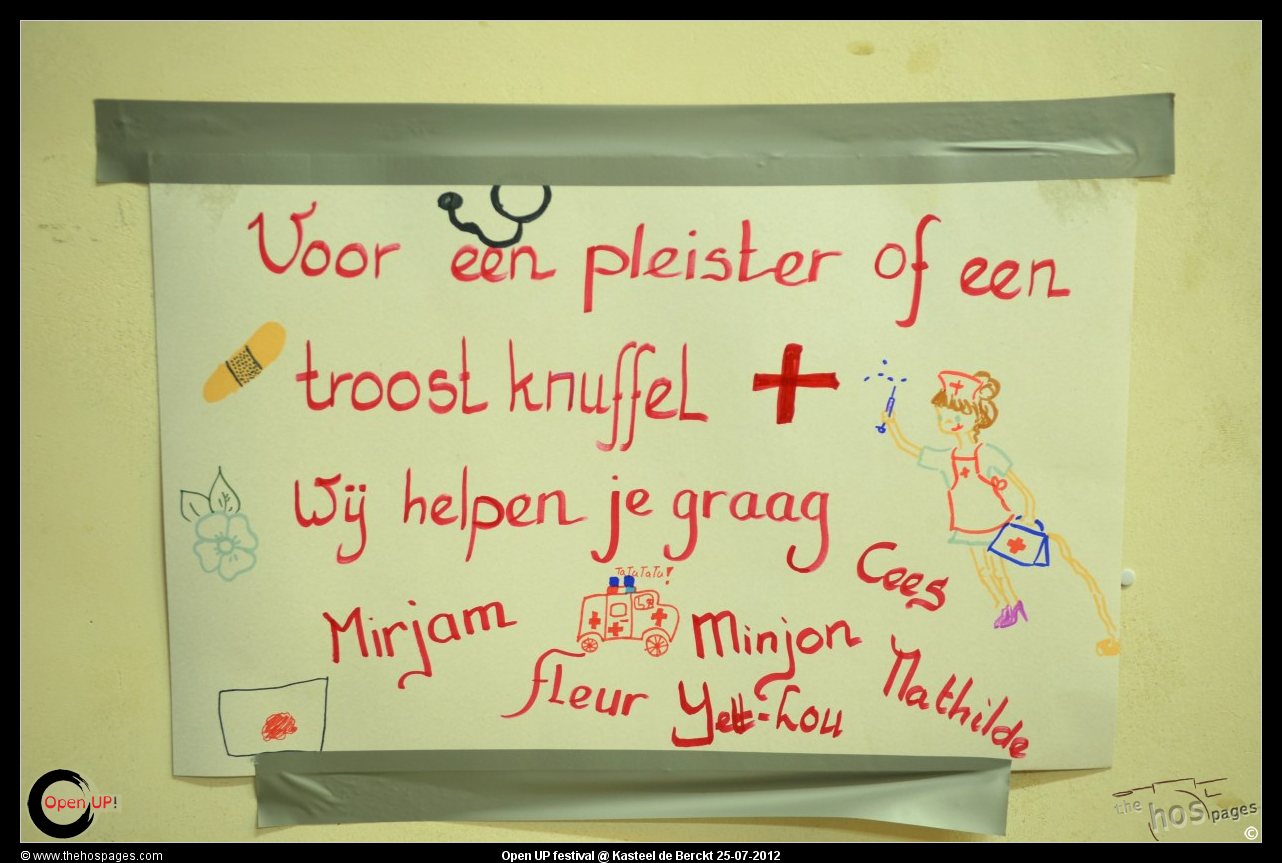 Voor een pleister of een
troost knuffel
Wij helpen je graag
Cees
TaTuTaTu!
Mirjam
Minjon
fleur
Yett-Lou
Mathilde
Open UP!
the hos pages ©
© www.thehospages.com
Open UP festival @ Kasteel de Berckt 25-07-2012